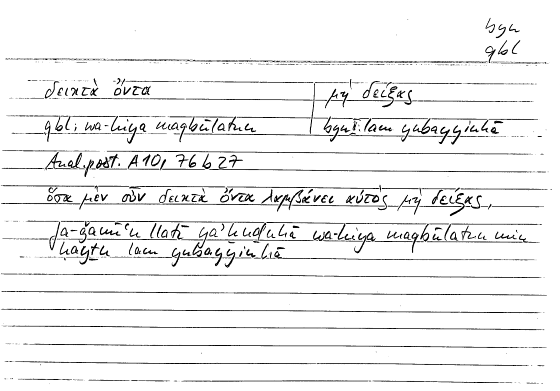 byn
qbl
δεικτὰ ὄντα
μὴ δείξας
qbl: wa-hiya maqbūlatun
byn II: lam yubayyinhā
Anal. post. A 10, 76 b 27
ὅσα μὲν οὖν δεικτὰ ὄντα λαμβάνει αὐτὸς μὴ δείξας,
fa-ǧamīʿu llatī yaʾḫuḏuhā wa-hiya maqbūlatun min
ḥayṯu lam yubayyinhā